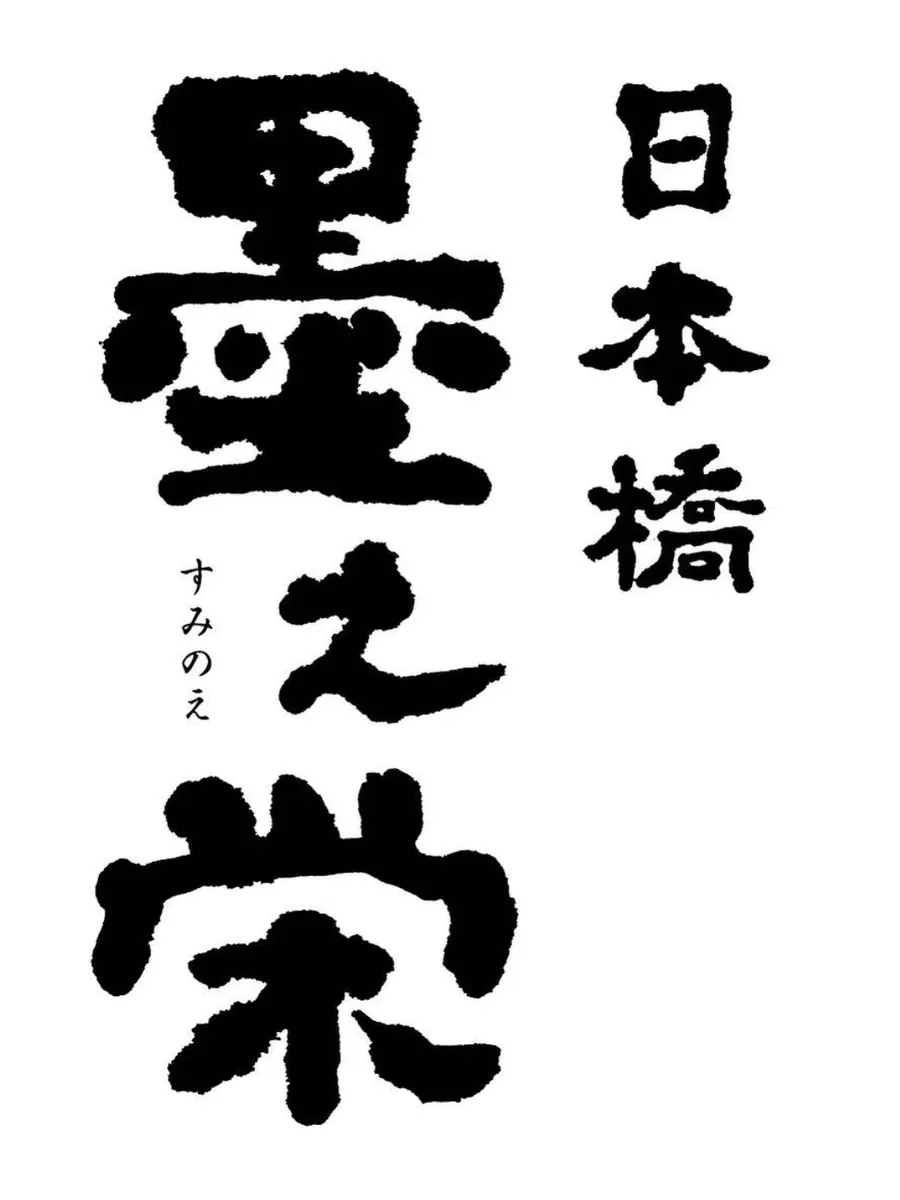 日本橋
墨之栄
すみのえ